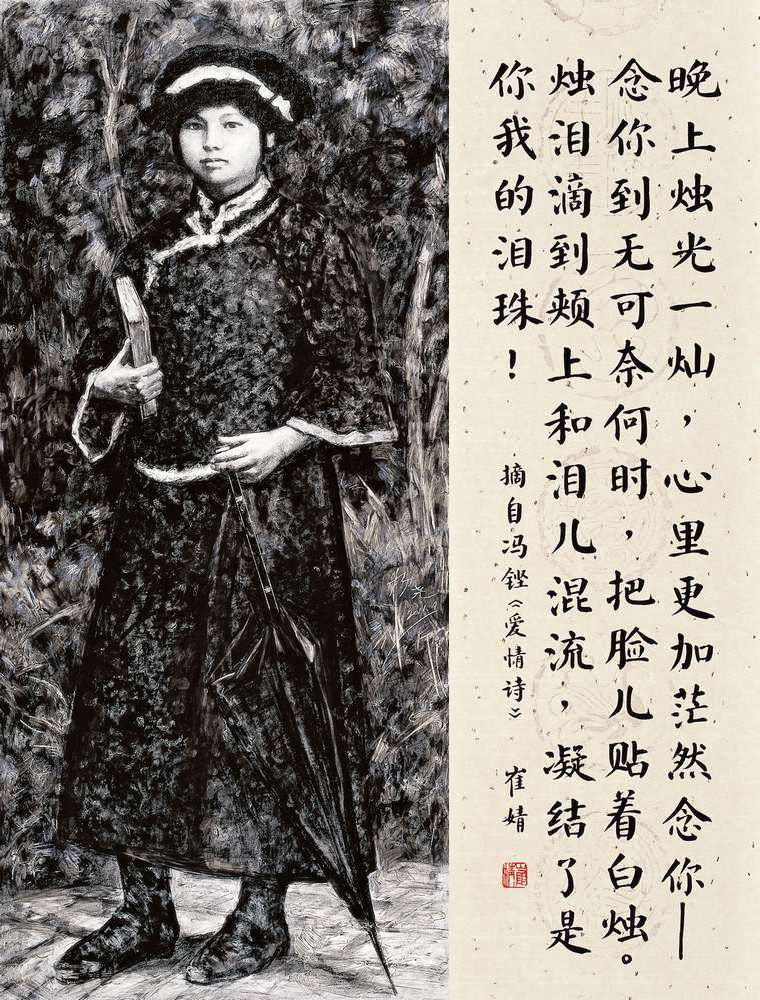 晚上烛光一灿，心里更加茫然念你—
念你到无可奈何时，把脸儿贴着白烛。
烛泪滴到颊上和泪儿混流，凝结了是
你我的泪珠！
摘自冯铿《爱情诗》 崔婧